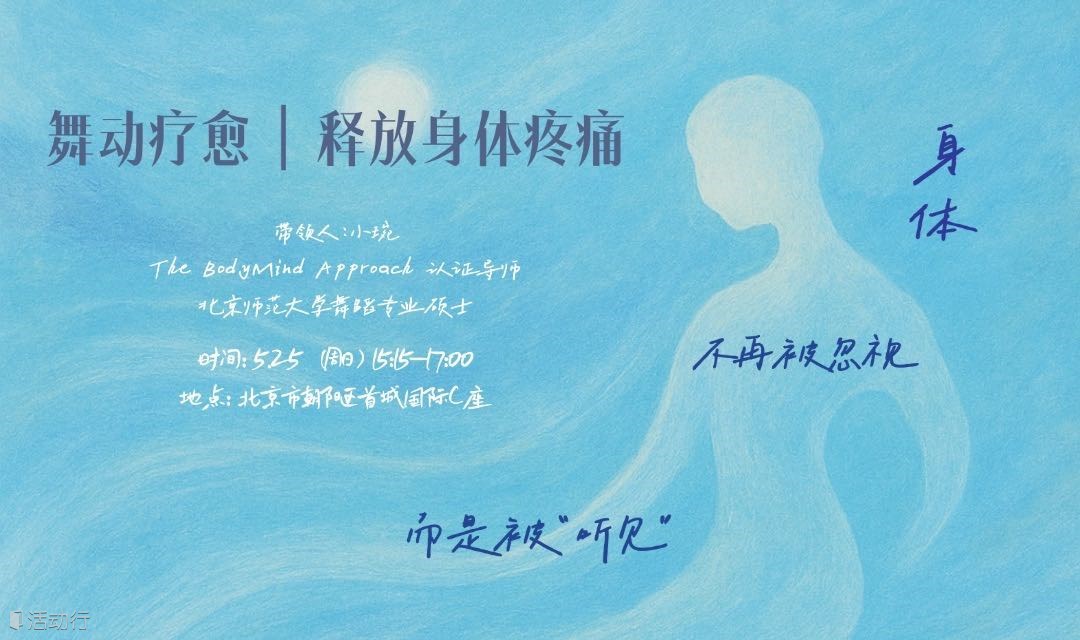 舞动疗愈 | 释放身体疼痛
带领人:小琬
The BodyMind Approach 认证导师
北京师范大学舞蹈专业硕士
时间:5.25 (周日) 15:15-17:00
地点:北京市朝阳区首城国际C座
身
体
不再被忽视
而是被"听见"
活动行